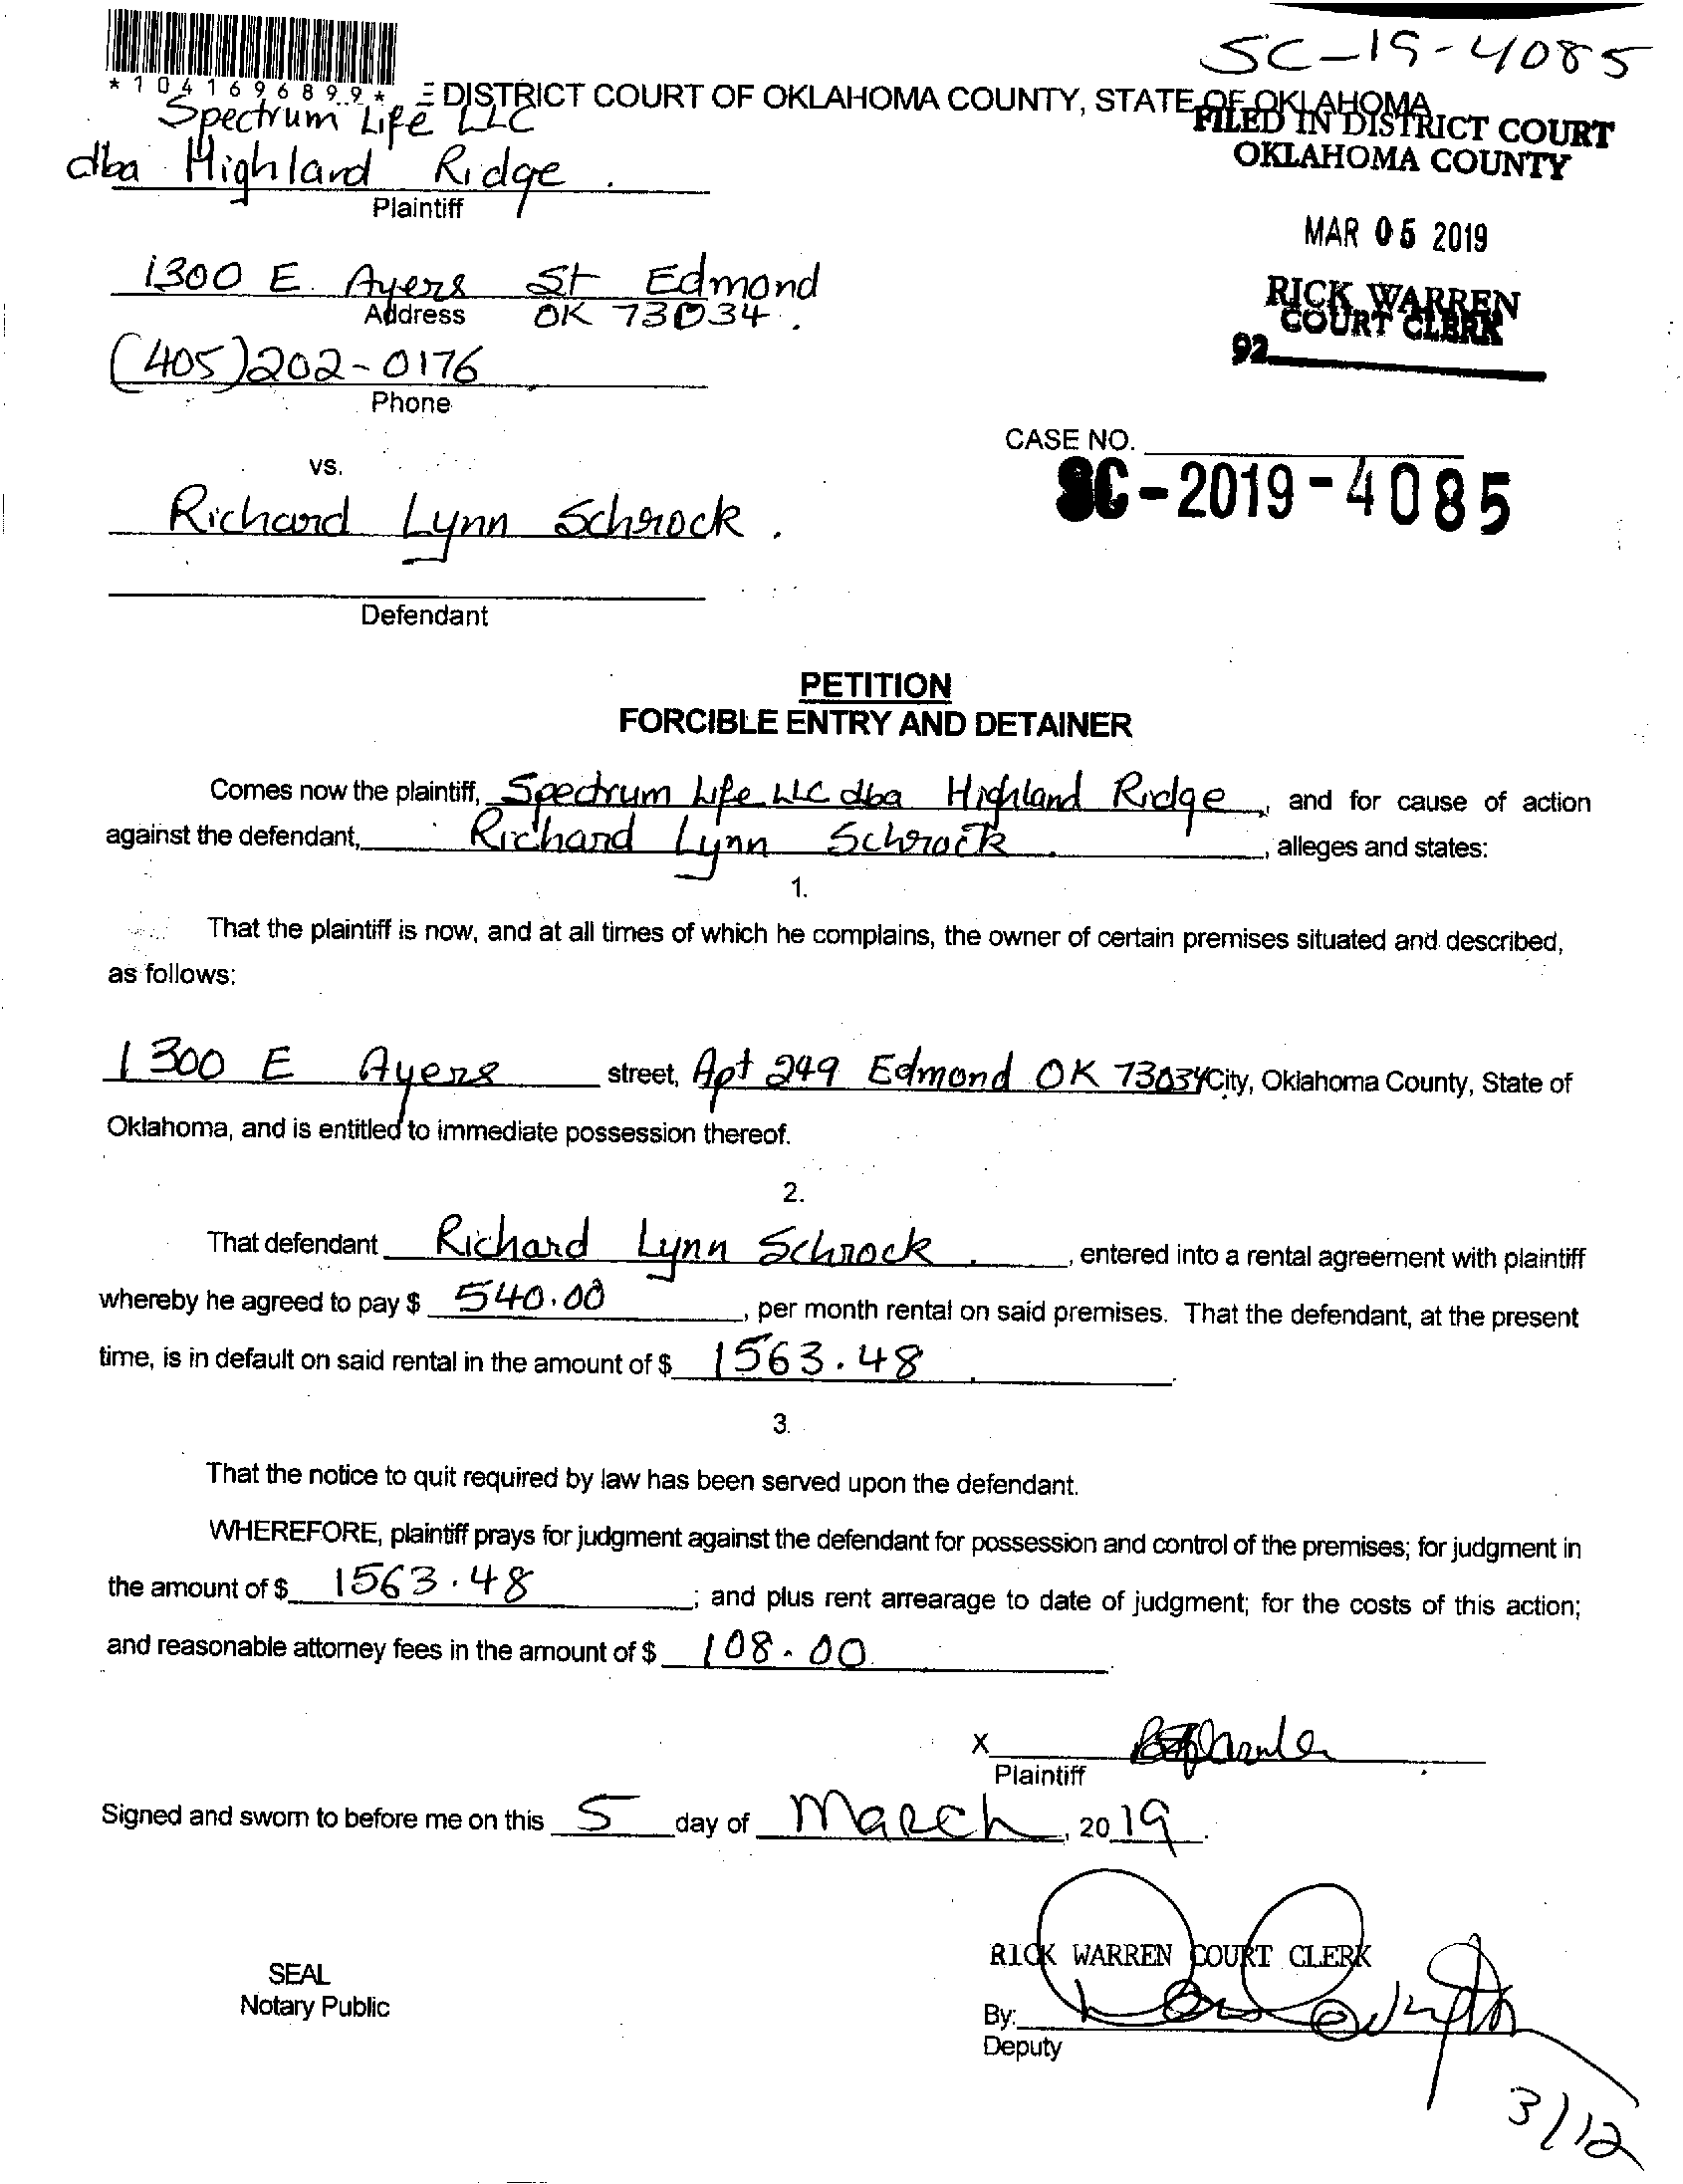 SC-19-4085
*1041696899*
E DISTRICT COURT OF OKLAHOMA COUNTY, STATE OF OKLAHOMA
Spectrum Life LLC
dba Highland Ridge.
Plaintiff
FILED IN DISTRICT COURT
OKLAHOMA COUNTY
MAR 05 2019
RICK WARREN
COURT CLERK
92
1300 E. Ayers St Edmond
Address OK 73034.
(405)202-0176
Phone
CASE NO.
SC-2019-4085
vs.
Richard Lynn Schrock.
Defendant
PETITION
FORCIBLE ENTRY AND DETAINER
Comes now the plaintiff, Spectrum Life LLC dba Highland Ridge, and for cause of action
against the defendant, Richard Lynn Schrock., alleges and states:
1.
That the plaintiff is now, and at all times of which he complains, the owner of certain premises situated and described,
as follows:
1300 E Ayers street, Apt 249 Edmond OK 73034 City, Oklahoma County, State of
Oklahoma, and is entitled to immediate possession thereof.
2.
That defendant Richard Lynn Schrock., entered into a rental agreement with plaintiff
whereby he agreed to pay $ 540.00, per month rental on said premises. That the defendant, at the present
time, is in default on said rental in the amount of $ 1563.48.
3.
That the notice to quit required by law has been served upon the defendant.
WHEREFORE, plaintiff prays for judgment against the defendant for possession and control of the premises; for judgment in
the amount of $ 1563.48; and plus rent arrearage to date of judgment; for the costs of this action;
and reasonable attorney fees in the amount of $ 108.00
X
Plaintiff
Signed and sworn to before me on this 5 day of March, 2019.
RICK WARREN COURT CLERK
SEAL
Notary Public
By:
Deputy
3/12